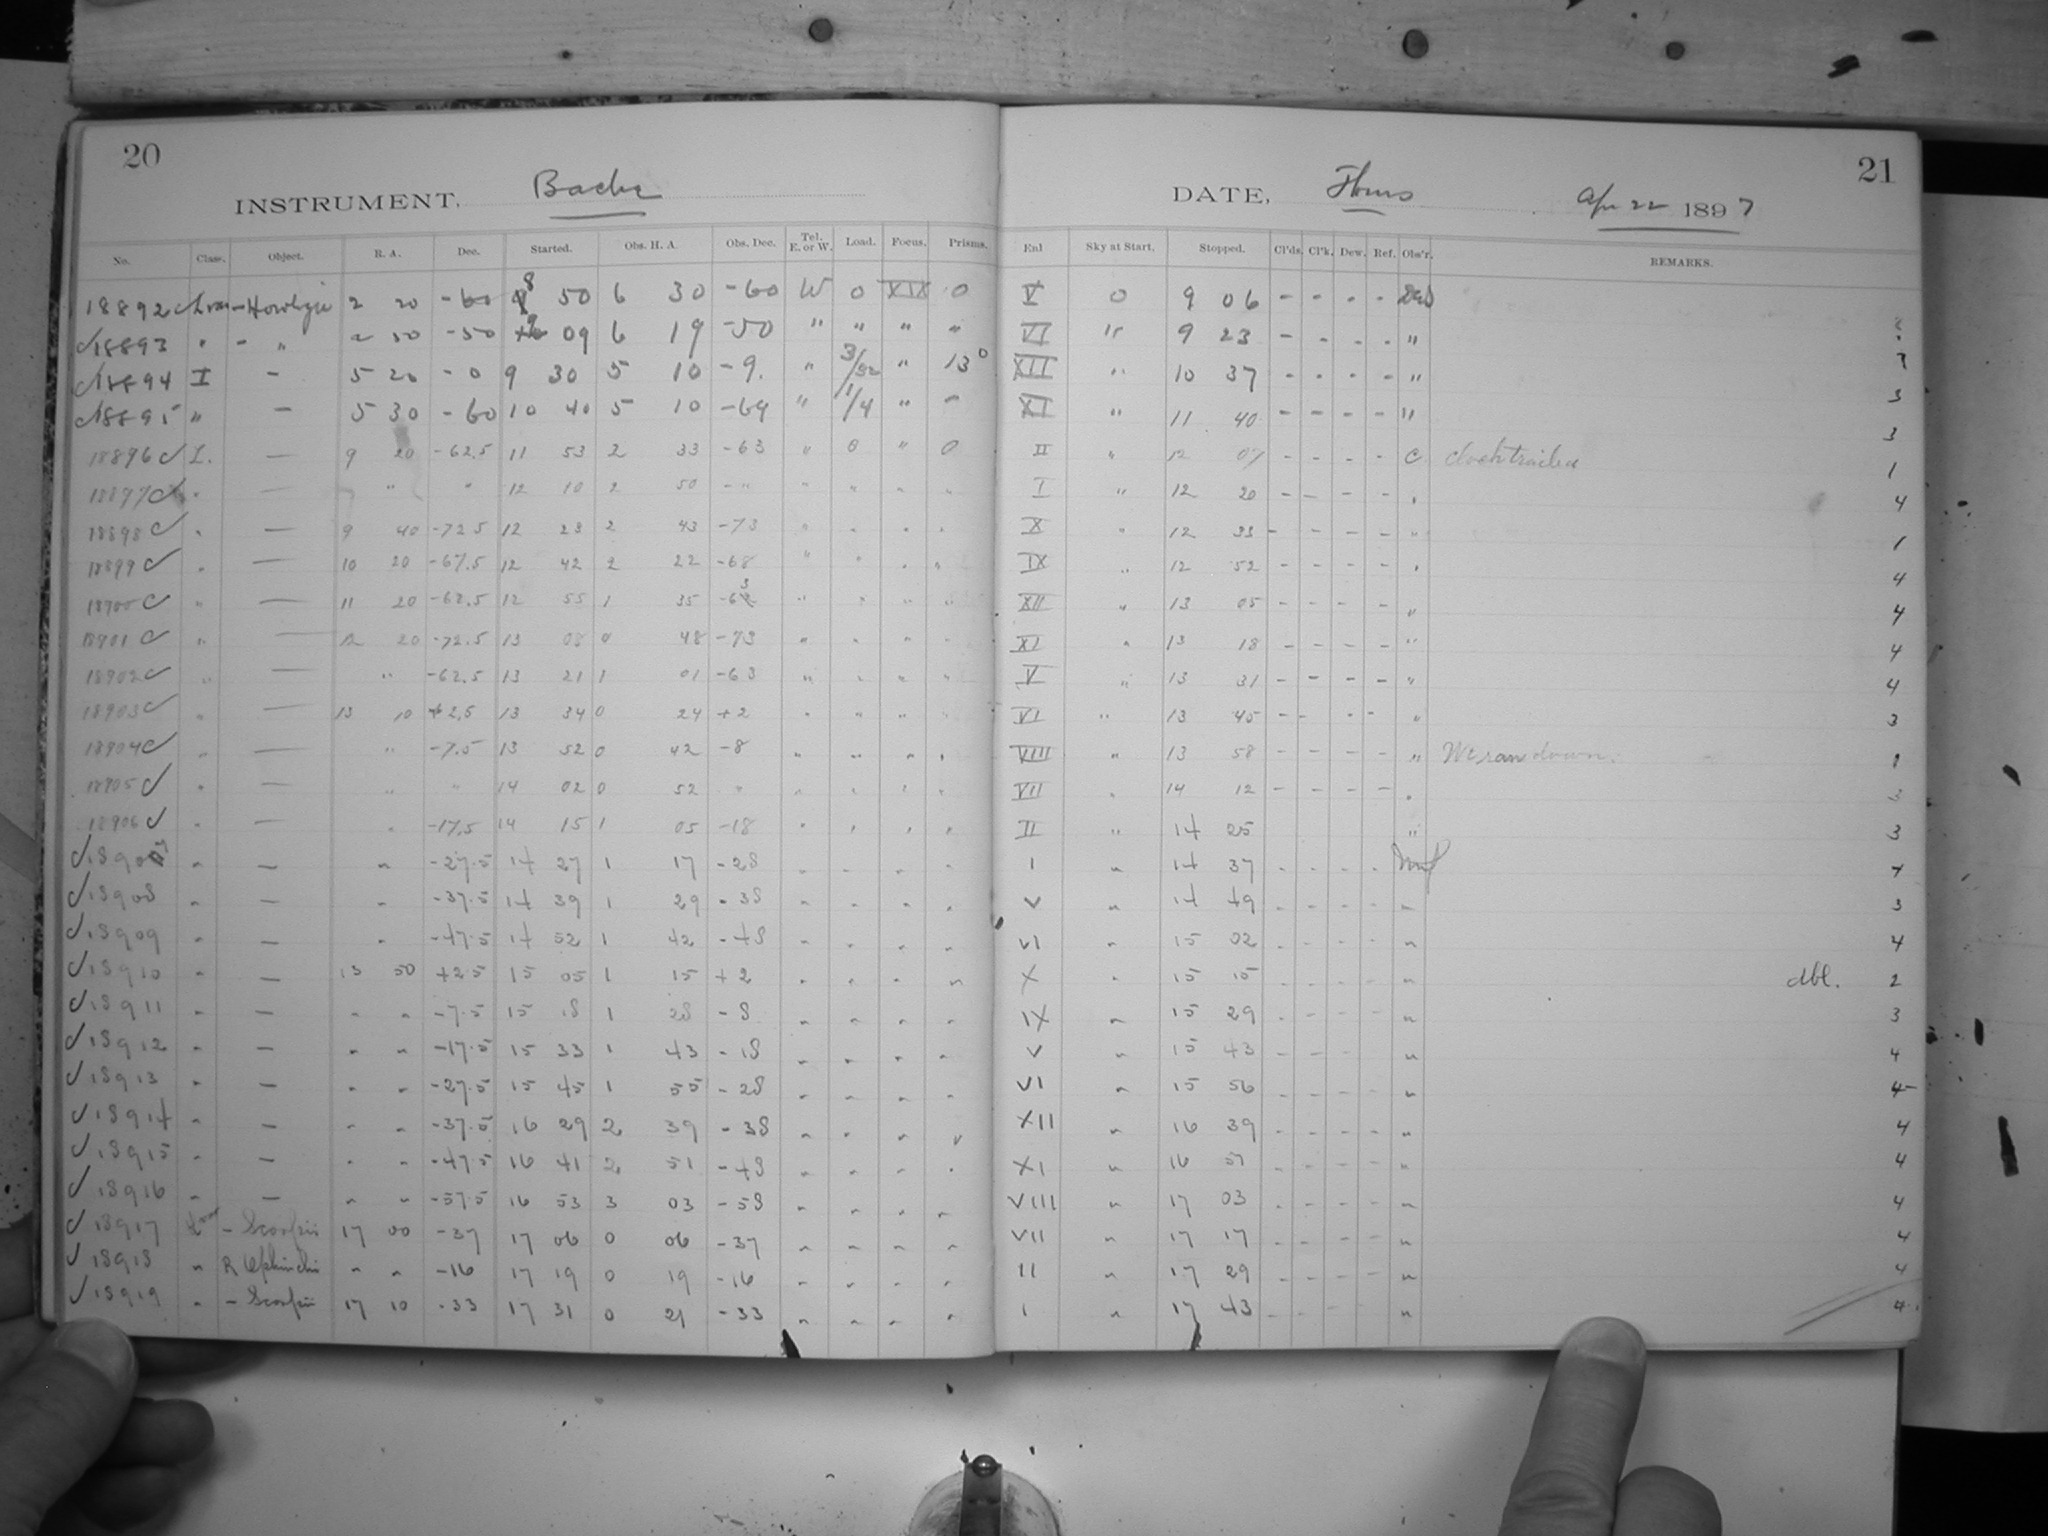 20
INSTRUMENT, Bache
DATE, Thurs Apr 22 1897
21
No. Class. Object. R. A. Dec. Started. Obs. H. A. Obs. Dec. Tel. E. or W. Load. Focus. Prisms. Enl Sky at Start. Stopped. Cl'ds. Cl'k. Dew. Ref. Obs'r. REMARKS.
18892 - 2 20 -60 8 50 6 30 -60 W 0 XIX 0 V 0 9 06 - - - -
18893 " - " 2 50 -50 9 09 6 19 -50 " " " " VI " 9 23 - - - - "
18894 I - 5 20 - 0 9 30 5 10 -9. " 3/32 " 13° XII " 10 37 - - - - " 3
18895 " - 5 30 -60 10 40 5 10 -64 " 1/4 " " XI " 11 40 - - - - " 3
18896 I. — 9 20 -62.5 11 53 2 33 -63 " 0 " 0 II " 12 07 - - - - C clock trailed 1
18897 " — " " 12 10 2 50 - " " " " " I " 12 20 - - - - " 4
18898 " — 9 40 -72.5 12 23 2 43 -73 " " " " X " 12 33 - - - - " 1
18899 " — 10 20 -67.5 12 42 2 22 -68 " " " " IX " 12 52 - - - - " 4
18900 " — 11 20 -62.5 12 55 1 35 -63 " " " " XII " 13 05 - - - - " 4
18901 " — 12 20 -72.5 13 08 0 48 -73 " " " " XI " 13 18 - - - - " 4
18902 " — " -62.5 13 21 1 01 -63 " " " " V " 13 31 - - - - " 4
18903 " — 13 10 +2.5 13 34 0 24 +2 " " " " VI " 13 45 - - - - " 3
18904 " — " -7.5 13 52 0 42 -8 " " " " VIII " 13 58 - - - - " Wt ran down. 1
18905 " — " " 14 02 0 52 " " " " " VII " 14 12 - - - - " 3
18906 " — " -17.5 14 15 1 05 -18 " " " " II " 14 25 " 3
18907 " — " -27.5 14 27 1 17 -28 " " " " I " 14 37 - - - - 4
18908 " — " -37.5 14 39 1 29 -38 " " " " V " 14 49 - - - - " 3
18909 " — " -47.5 14 52 1 42 -48 " " " " VI " 15 02 - - - - " 4
18910 " — 13 50 +2.5 15 05 1 15 +2 " " " " X " 15 15 - - - - " dbl. 2
18911 " — " " -7.5 15 18 1 28 -8 " " " " IX " 15 29 - - - - " 3
18912 " — " " -17.5 15 33 1 43 -18 " " " " V " 15 43 - - - " 4
18913 " — " " -27.5 15 45 1 55 -28 " " " " VI " 15 56 - - - - " 4
18914 " — " " -37.5 16 29 2 39 -38 " " " " XII " 16 39 - - - - " 4
18915 " — " " -47.5 16 41 2 51 -48 " " " " XI " 16 51 - - - - " 4
18916 " — " " -57.5 16 53 3 03 -58 " " " " VIII " 17 03 - - - - " 4
18917 - Scorpii 17 00 -37 17 06 0 06 -37 " " " " VII " 17 17 - - - - " 4
18918 " R Ophiuchi " " -16 17 19 0 19 -16 " " " " II " 17 29 - - - - " 4
18919 " - Scorpii 17 10 -33 17 31 0 21 -33 " " " " I " 17 43 - - - - " 4